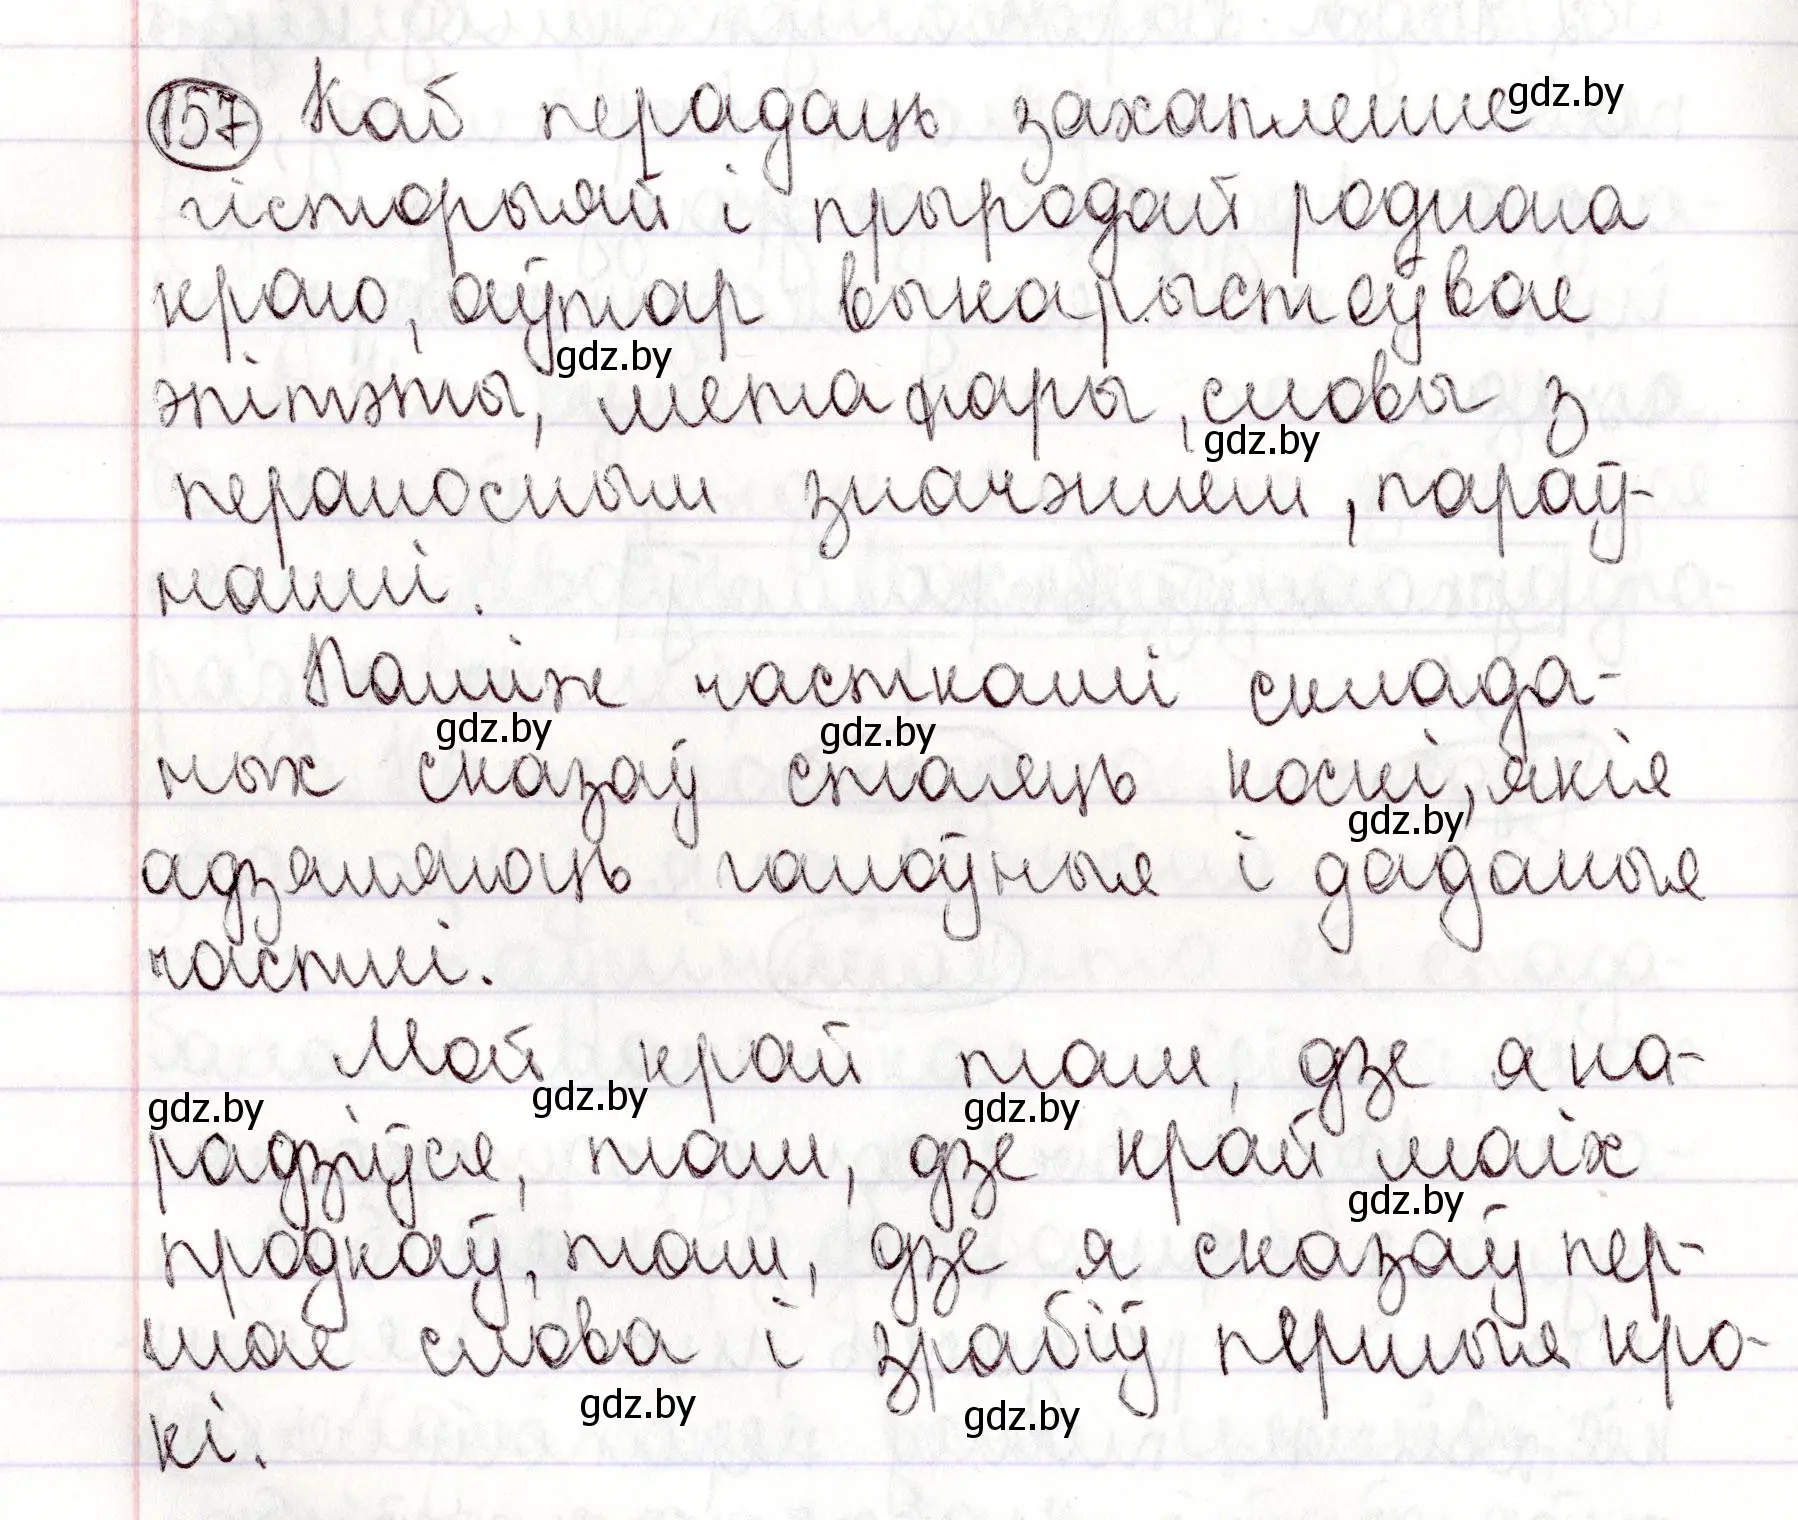 157 Каб перадаць захапленне
гісторыяй і прыродай роднага
краю, аўтар выкарыстоўвае
эпітэты, метафары, словы з
пераносным значэннем, параў-
нанні.
Паміж часткамі склада-
ных сказаў стаяць коскі, якія
адзяляюць галоўныя і даданыя
часткі.
Мой край там, дзе я на-
радзіўся, там, дзе край маіх
продкаў, там, дзе я сказаў пер-
шае слова і зрабіў першыя кро-
кі.
gdz.by
gdz.by
gdz.by
gdz.by
gdz.by
gdz.by
gdz.by
gdz.by
gdz.by
gdz.by
gdz.by
gdz.by